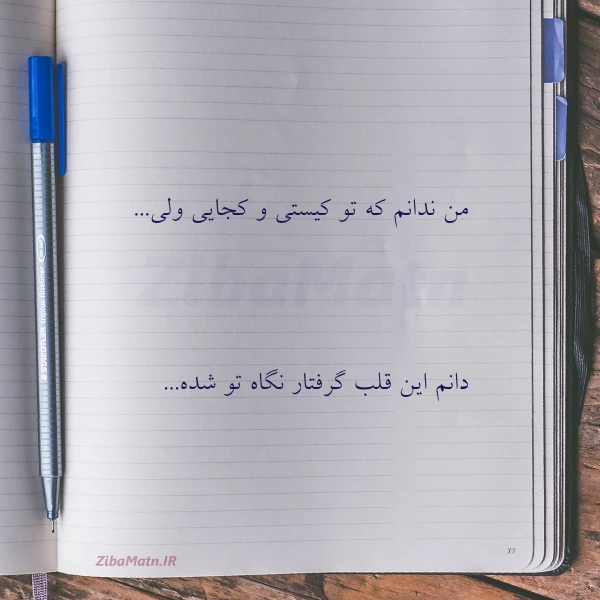 من ندانم که تو کیستی و کجایی ولی...
ZibaMatn
دانم این قلب گرفتار نگاه تو شده...
77
ZibaMatn.IR